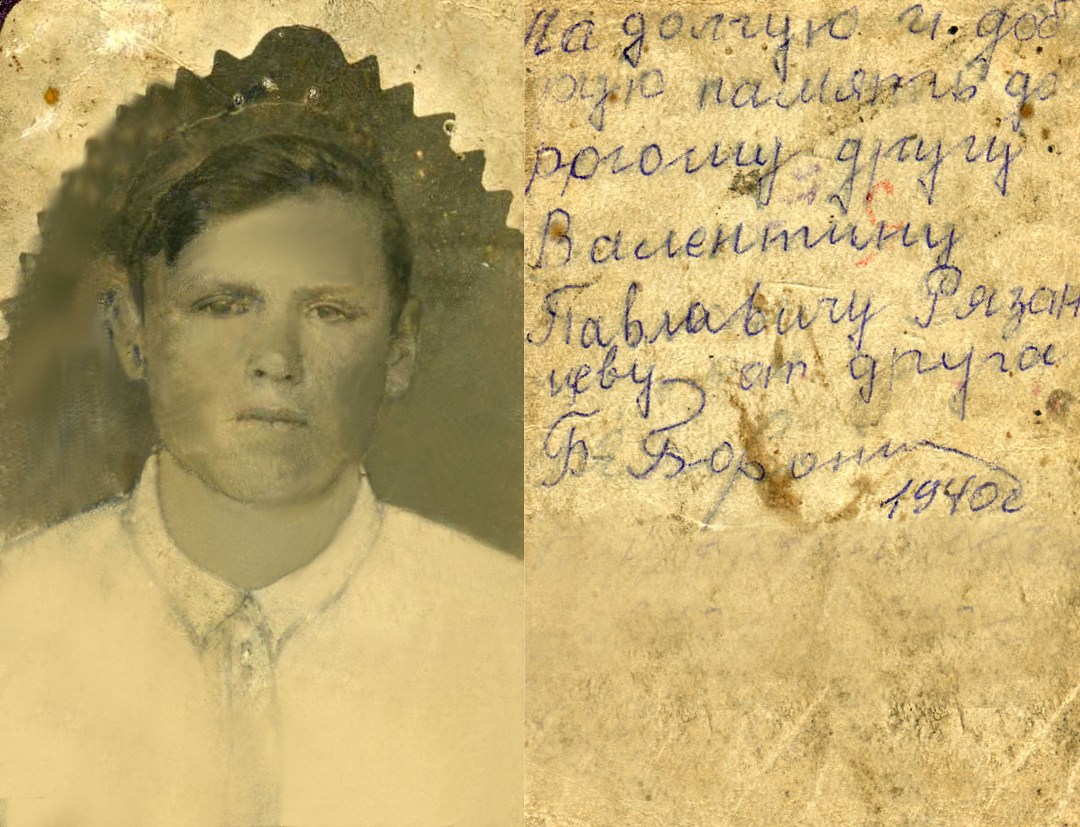 На долгую и доб
рую память до
рогому другу
Валентину
Павлавичу Рязан
цеву от друга
Б
1940г